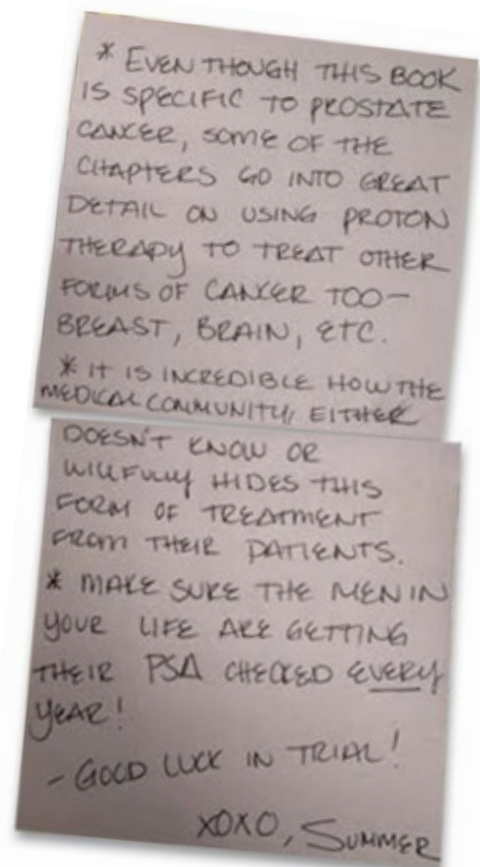 * EVEN THOUGH THIS BOOK
IS SPECIFIC TO PROSTATE
CANCER, SOME OF THE
CHAPTERS GO INTO GREAT
DETAIL ON USING PROTON
THERAPY TO TREAT OTHER
FORMS OF CANCER TOO-
BREAST, BRAIN, ETC.
* IT IS INCREDIBLE HOW THE
MEDICAL COMMUNITY, EITHER
DOESN'T KNOW OR
WILLFULLY HIDES THIS
FORM OF TREATMENT
FROM THEIR PATIENTS.
* MAKE SURE THE MEN IN
YOUR LIFE ARE GETTING
THEIR PSA CHECKED EVERY
YEAR!
- GOOD LUCK IN TRIAL!
XOXO, SUMMER